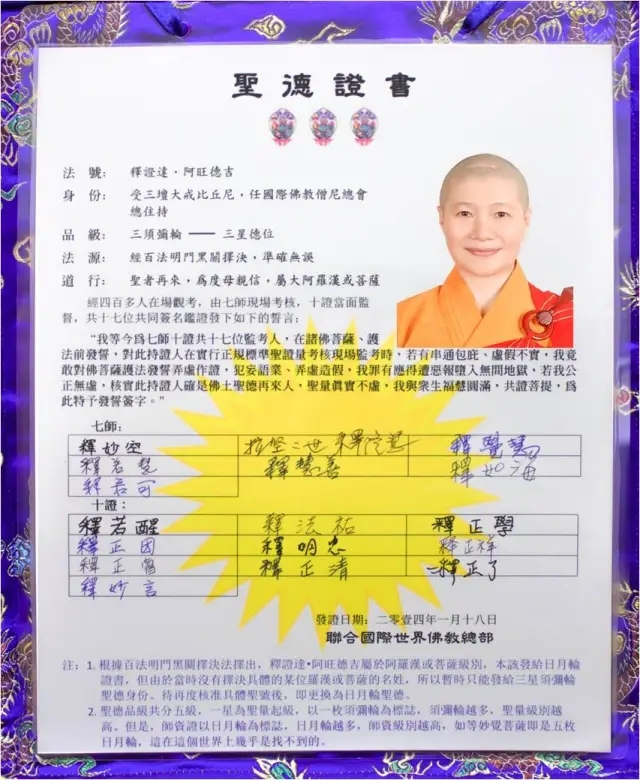 聖德證書
法　號：　釋證達・阿旺德吉
身　份：　受三壇大戒比丘尼，任國際佛教僧尼總會
總住持
品　級：　三須彌輪 —— 三星德位
法　源：　經百法明門黑關擇決，準確無誤
道　行：　聖者再來，為度母親信，屬大阿羅漢或菩薩
經四百多人在場觀考，由七師現場考核，十證當面監
督，共十七位共同簽名鑑證發下如下的誓言：
“我等今為七師十證共十七位監考人，在諸佛菩薩、護
法前發誓，對此持證人在實行正規標準聖證量考核現場監考時，若有串通包庇、虛假不實，我竟
敢對佛菩薩護法發誓弄虛作證，犯妄語業、弄虛造假，我罪有應得遭惡報墮入無間地獄，若我公
正無虛，核實此持證人確是佛土聖德再來人，聖量真實不虛，我與眾生福慧圓滿，共證菩提，為
此特予發誓簽字。”
七師：
釋妙空　釋覺慧
釋若慧　釋慧善　釋如海
釋若可
十證：
釋若醒　釋法祐　釋正學
釋正因　釋明忠　釋正祥
釋正賢　釋正清　釋正了
釋妙言
發證日期：二零壹四年一月十八日
聯合國際世界佛教總部
注：1. 根據百法明門黑關擇決法擇出，釋證達•阿旺德吉屬於阿羅漢或菩薩級別，本該發給日月輪
證書，但由於當時沒有擇決具體的某位羅漢或菩薩的名姓，所以暫時只能發給三星須彌輪
聖德身份。待再度核准具體聖號後，即更換為日月輪聖德。
2. 聖德品級共分五級，一星為聖量起級，以一枚須彌輪為標誌，須彌輪越多，聖量級別越
高。但是，師資證以日月輪為標誌，日月輪越多，師資級別越高，如等妙覺菩薩即是五枚
日月輪，這在這個世界上幾乎是找不到的。